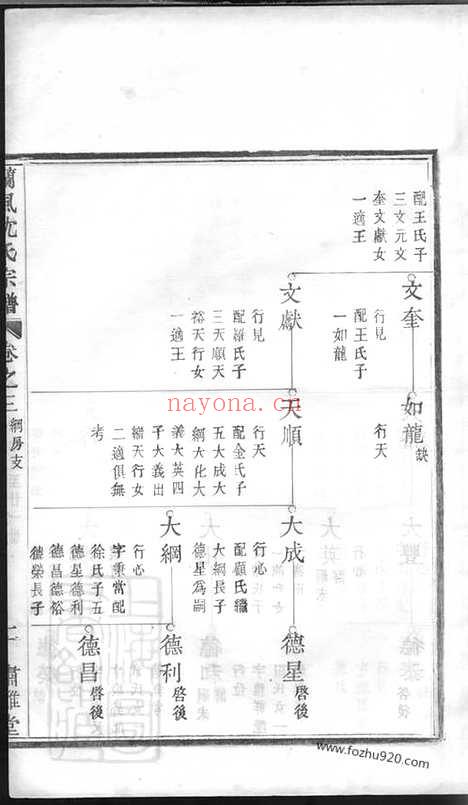 配王氏子
三文元文
奎文獻女
一適王
文奎
行見
配王氏子
一如龍
文獻
行見
配羅氏子
三天順天
裕天行女
一適王
如龍 缺
行天
天順
行天
配金氏子
五大成大
綱大化大
義大英四
子大義出
繼天行女
二適俱無
考
大成
行心
配顧氏繼
大綱長子
德星為嗣
大綱
行心
字秉當配
徐氏子五
德星德利
德昌德裕
德榮長子
德星 啓後
德利 啓後
德昌 啓後
蘭風沈氏宗譜
卷之三
綱房支
二
肅雝堂
nayona.cn
www.fozhu920.com